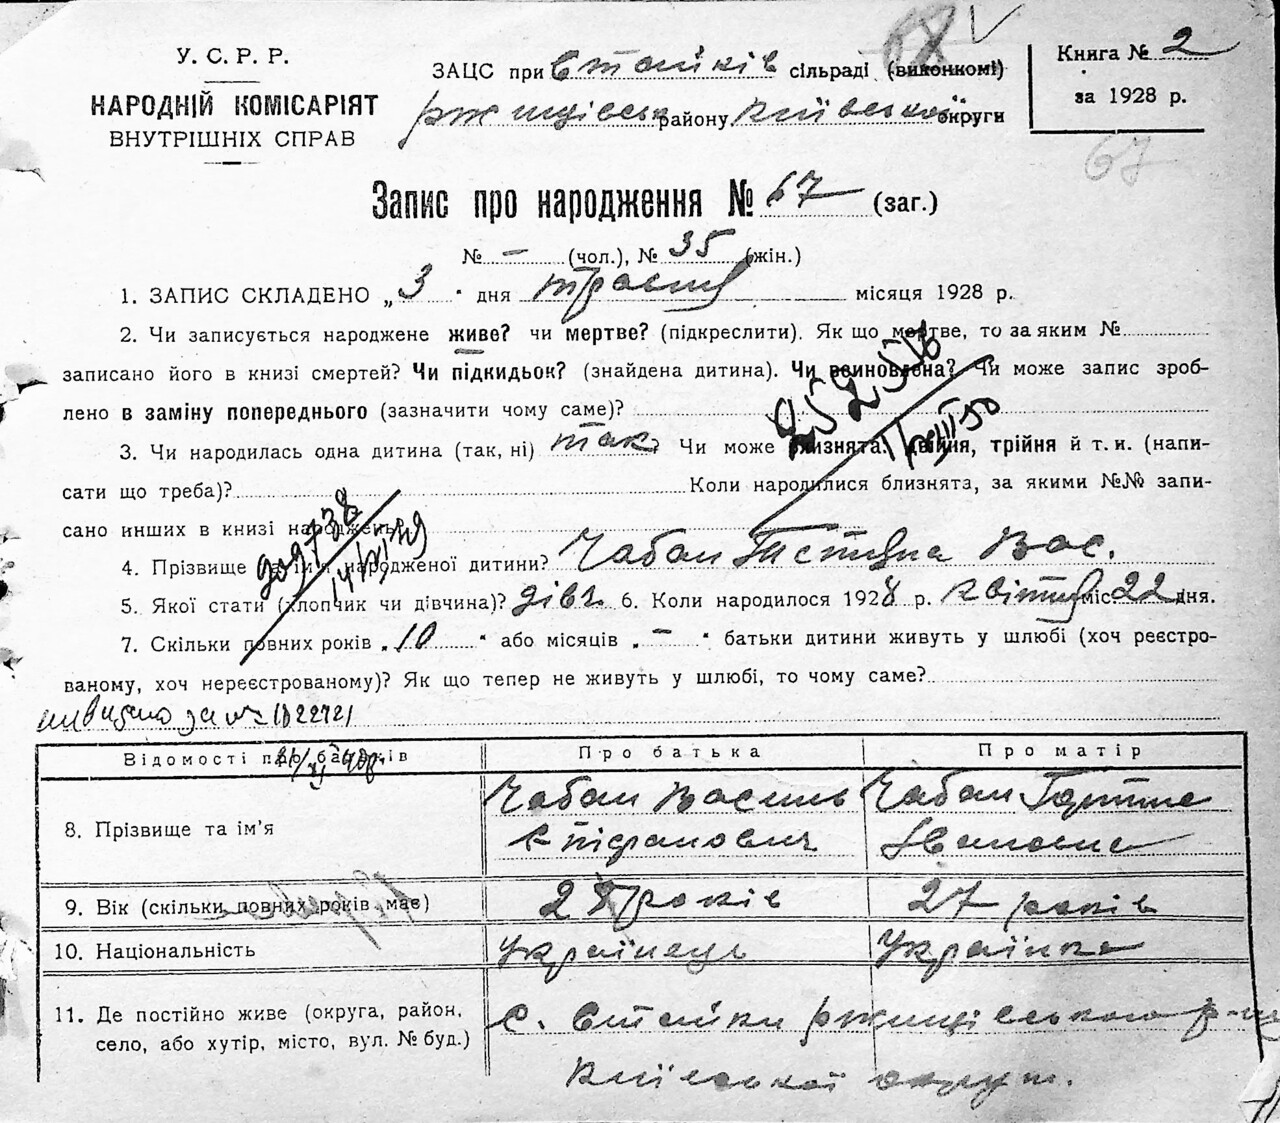 У. С. Р. Р.
НАРОДНІЙ КОМІСАРІЯТ
ВНУТРІШНІХ СПРАВ
ЗАЦС при Стайків сільраді (виконкомі)
ржищівськ району київської округи
Книга № 2
за 1928 р.
67
Запис про народження № 67 (заг.)
№ – (чол.), № 35 (жін.)
1. ЗАПИС СКЛАДЕНО „3" дня травня місяця 1928 р.
2. Чи записується народжене живе? чи мертве? (підкреслити). Як що мертве, то за яким №
записано його в книзі смертей? Чи підкидьок? (знайдена дитина). Чи всиновлена? Чи може запис зроб-
лено в заміну попереднього (зазначити чому саме)?
3. Чи народилась одна дитина (так, ні) так Чи може близнята, двійня, трійня й т. и. (напи-
сати що треба)? Коли народилися близнята, за якими №№ запи-
сано инших в книзі народжень?
4. Прізвище та ім'я народженої дитини? Чабан Вас.
5. Якої стати (хлопчик чи дівчина)? дівч. 6. Коли народилося 1928 р. квітня міс. 22 дня.
7. Скільки повних років „10" або місяців „–" батьки дитини живуть у шлюбі (хоч реєстро-
ваному, хоч нереєстрованому)? Як що тепер не живуть у шлюбі, то чому саме?
Відомості про батьків Про батька Про матір
8. Прізвище та ім'я Чабан Василь Чабан
Івановна
9. Вік (скільки повних років має) років 27 років
10. Національність Українець Українка
11. Де постійно живе (округа, район, село, або хутір, місто, вул. № буд.) с. Стайки ржищівського р-ну
Київської округи.